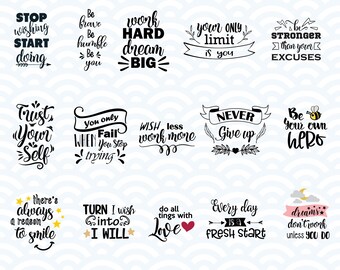 STOP
wishing
START
doing
Be
brave
Be
humble
Be
you
work
HARD
dream
BIG
your ONLY
limit
is you
be
STRONGER
than your
EXCUSES
Trust
Your
Self
You only
Fail
WHEN You Stop
trying
WISH less
work more
NEVER
Give up
Be
Your own
hero
there's
always
a reason
to smile
TURN I wish
into
I WILL
do all
tings with
Love
Every day
IS A
FRESH START
dreams
don't work
unless YOU DO